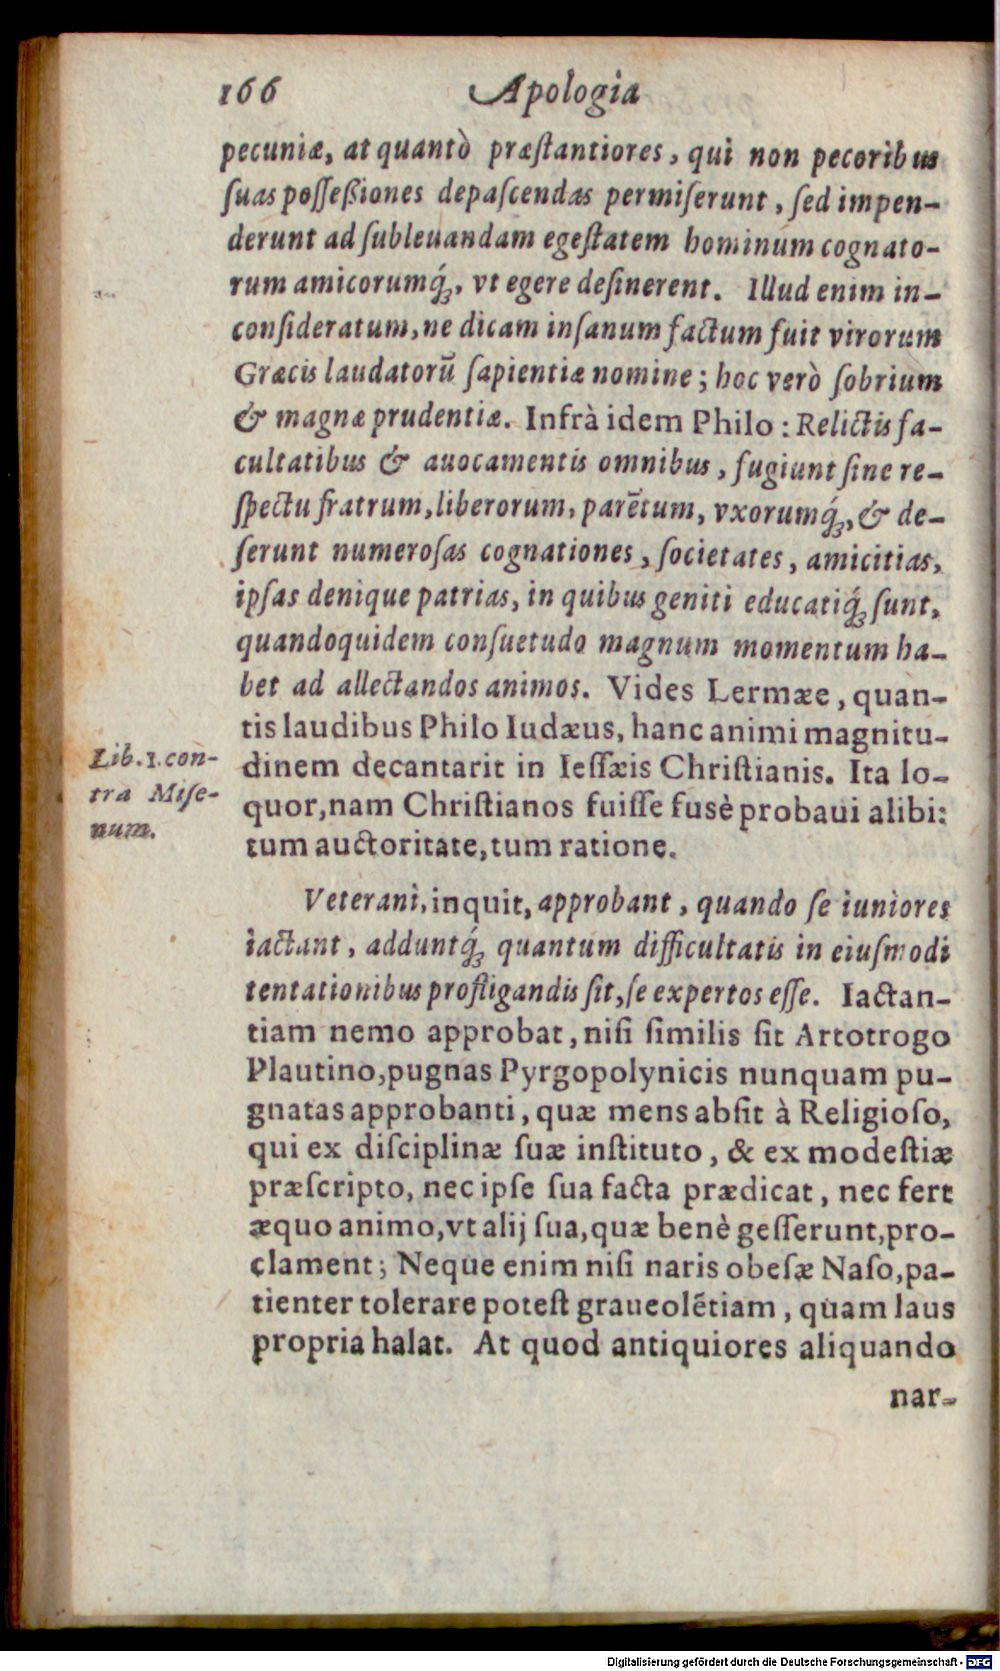 166 Apologia
pecuniæ, at quantò præſtantiores, qui non pecoribus
ſuas poſſeßiones depaſcendas permiſerunt, ſed impen-
derunt ad ſubleuandam egeſtatem hominum cognato-
rum amicorumq́ꝫ, vt egere deſinerent. Illud enim in-
conſideratum, ne dicam inſanum factum fuit virorum
Græcis laudatorū ſapientiæ nomine; hoc verò ſobrium
& magnæ prudentiæ. Infrà idem Philo: Relictis fa-
cultatibus & auocamentis omnibus, fugiunt ſine re-
ſpectu fratrum, liberorum, parētum, vxorumq́ꝫ, & de-
ſerunt numeroſas cognationes, ſocietates, amicitias,
ipſas denique patrias, in quibus geniti educatiq́ꝫ ſunt,
quandoquidem conſuetudo magnum momentum ha-
bet ad allectandos animos. Vides Lermæe, quan-
tis laudibus Philo Iudæus, hanc animi magnitu-
dinem decantarit in Ieſſæis Chriſtianis. Ita lo-
quor, nam Chriſtianos fuiſſe fusè probaui alibi:
tum auctoritate, tum ratione.
Lib. 1. con-
tra Miſe-
num.
Veterani, inquit, approbant, quando ſe iuniores
iactant, adduntq́ꝫ quantum difficultatis in eiuſmodi
tentationibus profligandis ſit, ſe expertos eſſe. Iactan-
tiam nemo approbat, niſi ſimilis ſit Artotrogo
Plautino, pugnas Pyrgopolynicis nunquam pu-
gnatas approbanti, quæ mens abſit à Religioſo,
qui ex diſciplinæ ſuæ inſtituto, & ex modeſtiæ
præſcripto, nec ipſe ſua facta prædicat, nec fert
æquo animo, vt alij ſua, quæ benè geſſerunt, pro-
clament; Neque enim niſi naris obeſæ Naſo, pa-
tienter tolerare poteſt graueolẽtiam, quam laus
propria halat. At quod antiquiores aliquando
nar-
Digitalisierung gefördert durch die Deutsche Forschungsgemeinschaft - DFG